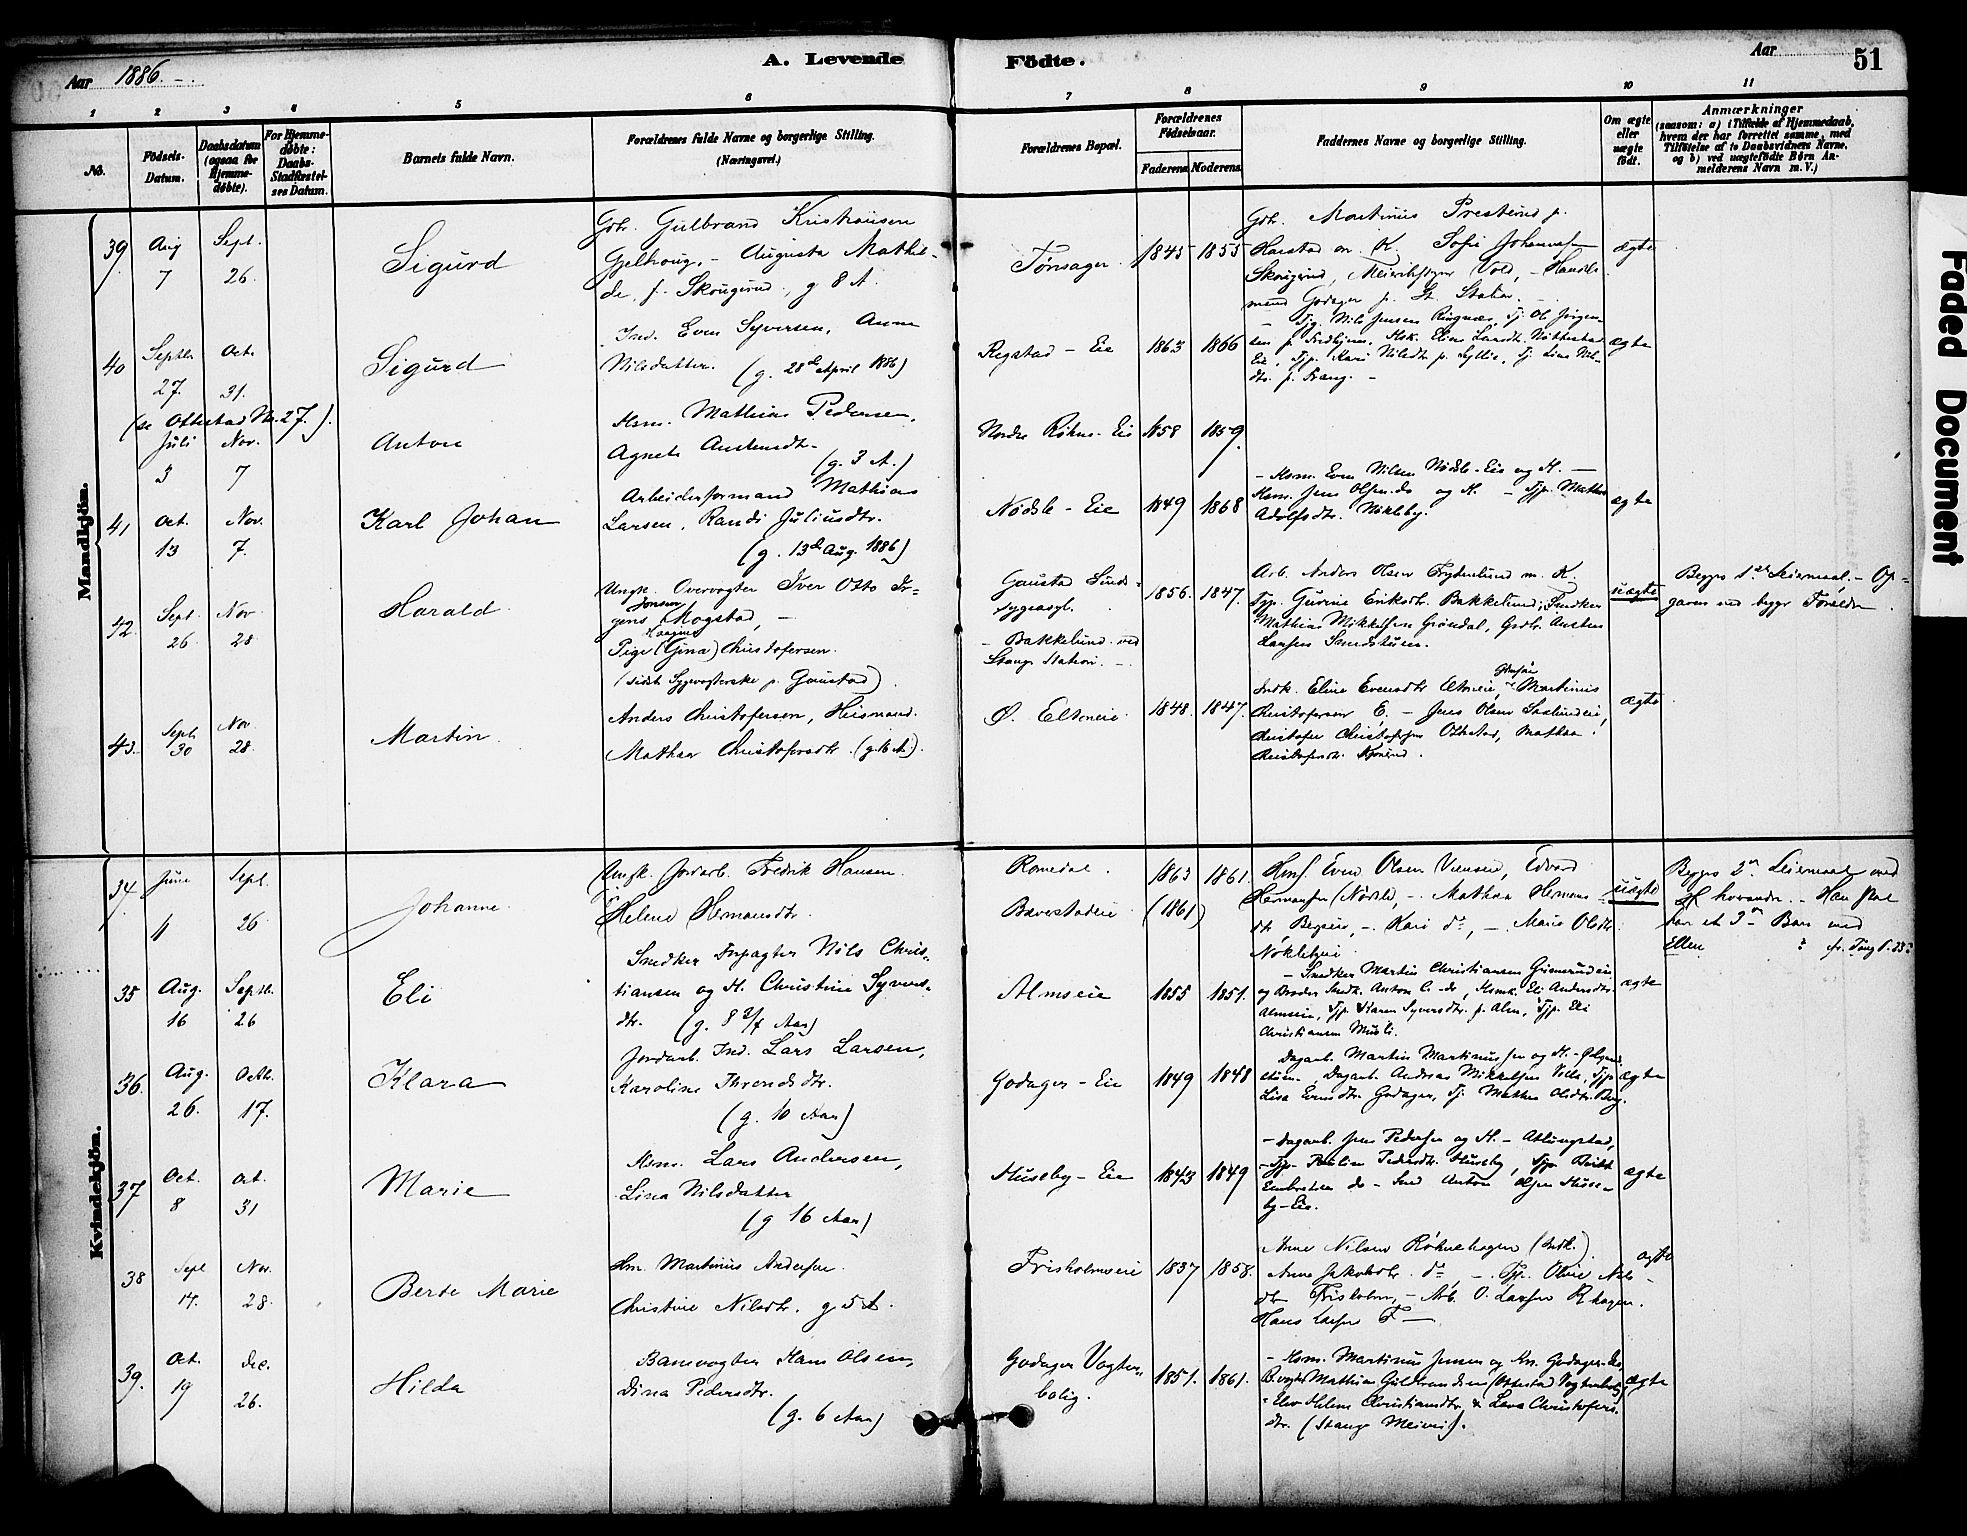 Aar 1886.
A. Levende Fødte.
Aar
51
1 2 3 4 5 6 7 8 9 10 11
No.
Fødsels-Datum.
Daabsdatum (ogsaa for Hjemme-døbte).
For Hjemme-døbte: Daabs-Stadfæstel-ses Datum.
Barnets fulde Navn.
Forældrenes fulde Navne og borgerlige Stilling.
(Næringsvei.)
Forældrenes Bopæl.
Forældrenes Fødselsaar.
Faderens. Moderens.
Faddernes Navne og borgerlige Stilling.
Om ægte eller uægte født.
Anmærkninger
(saasom: a) i Tilfælde af Hjemmedaab,
hvem der har forrettet samme, med
Tilføielse af to Daabsvidners Navne,
og b) ved uægtefødte Børn An-
melderens Navn m. V.)
Mandkjön.
39 Aug 7 Sept. 26.
Sigurd
Gbr. Gulbrand Kristiansen
Gjelhoug, - Augusta Mathil-
de, f. Skougerud, g 8 A.
Tønsager.
1845 1855
Gbr. Martinius Presterud p.
Harstad m. K. Sofie Johannesen
Skougerud, Vold, - Handels-
mand Godager p. St. Station.
ægte
40 Septbr. 27. Oct. 31.
Sigurd
Ind. Even Syversen, Anne
Nilsdatter. (g. 28de April 1886)
Ringstad - Eie
1863 1866
Nils Jensen Ringnæs, Tj. Ol. Jørgen-
sen
Eie, Tjp. Kari Nilsdtr. p. Gyllie, Tj. Lina Nils-
dtr. p. Frang. -
ægte
(se Ottestad No. 27.)
Juli 3 Nov. 7
Anton
Hsm. Mathias Pedersen,
Agnete Austensdtr.
(g. 3 A.)
Nordre Røhne - Eie
1858 1859.
41 Oct. 13 Nov. 7.
Karl Johan
Arbeiderformand Mathias
Larsen, Randi Juliusdtr.
(g. 13de Aug. 1886)
Nødsle - Eie
1849 1868
- Hsm. Even Nilsen Nødsle - Eie og H. -
Hsm. Jens Olsen do og H. - Tjp. Mathea
Adolfsdtr. Nøkleby.
ægte
42. Sept. 26 Nov. 28
Harald.
Ungk. Overvogter Iver Otto Jr-
Jonsen
gens Mogstad, -
Haagine
Pige (Gina) Christofersen.
(sidst Sygevogterske p. Gaustad).
Gaustad Sinds-
sygeasyl.
- Bakkelund ved
Stange Station. -
1856. 1847.
Arb. Anders Olsen Frydenlund m. K
Tjp. Gurine Eriksdtr. Bakkelund, Snedker
Mathias Mikkelsen Grøndal, Gbr. Austen
Larsen Sandstuen.
uægte
Begges 1ste Leiermaal. - Op-
gaven ved begge Forældre
43. Sept. 30 Nov. 28.
Martin
Anders Christofersen, Husmand.
Mathea Christofersdtr. (g. 6 A).
Ø. Eltoneie.
1848. 1847.
Indk. Eline Evensdtr
Christofersen E. - Jens Olsen
Christofer Christofersen Ottestad, Mathea
Christofersdtr.
ægte
Kvindekjön.
34 June 4 Sept. 26
Johanne.
Ungk. Jordarb. Fredrik Hansen.
P. Helene Hermansdtr.
Romedal.
Bæverstadeie
1863 1861.
(1861)
Hm. Even Olsen Vensen, Edvard
Hermansen (Nødsle, - Mathea Hermans-
dtr, - Kari do, - Marie Olsdtr
Nøklebyeie
uægte
Begges 2n Leiermaal med
hverandre. - Han skal
have et 3n Barn med
Ellen
35 Aug. 16 Septbr. 26
Eli
Snedker Forpagter Nils Chris-
tiansen og H. Christine Syvers-
dtr. (g. 8 3/4 Aar)
Almseie
1855 1851.
- Snedker Martin Christiansen
og Broder Snedk. Anton C. do, Hsmk. Eli Andersdtr.
Almseie, Tjp. Karen Syversdtr. p. Alm, Tjp. Eli
Christiansen Musli.
ægte
36. Aug. 26. Octb. 17.
Klara
Jordarb. Ind. Lars Larsen,
Karoline Throndsdtr.
(g. 10 Aar)
Godager - Eie
1849 1848
Dagarb. Martin Martinussen og H. -
stuen. Dagarb. Andreas Mikkelsen Tjp.
Lisa Evensdtr. Godager, Tj. Mathea Olsdtr. Berg.
ægte
37 Oct. 8 Oct. 31
Marie
Hsm. Lars Andersen,
Lina Nilsdatter
(g 16 Aar)
Huseby - Eie
1843 1849
- Dagarb. Jens Pedersen og H. - Atlungstad,
- Tjp. Pauline Pedersdtr. Huseby, Tjp. Berit
Embretsen do - Ind. Anton Olsen Huse-
by - Eie.
ægte
38 Sept 14. Nov. 28.
Berte Marie
Hm. Martinius Andersen.
Christine Nilsdtr. g 5 A.
Frisholmseie
1837 1858.
Anne Nilsen Røhnehagen (Indk.).
Anne Jakobsdtr. do, - Tjp. Oline Nils-
dtr Frisholm, - Arb. O. Larsen R.hagen.
Hans Larsen F -
ægte
39. Oct. 19 Dec. 26.
Hilda
Banevogter Hans Olsen,
Dina Pedersdtr.
(g. 6 Aar)
Godager Vogter-
bolig.
1851. 1861.
- Hsm. Martinus Jensen og Kn. Godager-Eie,
B.vogter Mathias Guldbrandsen (Ottestad Vogterbolig),
Elev Helene Christiansdtr. & Lava Christofers-
dtr. (Stange Meieri).
ægte
Faded Document